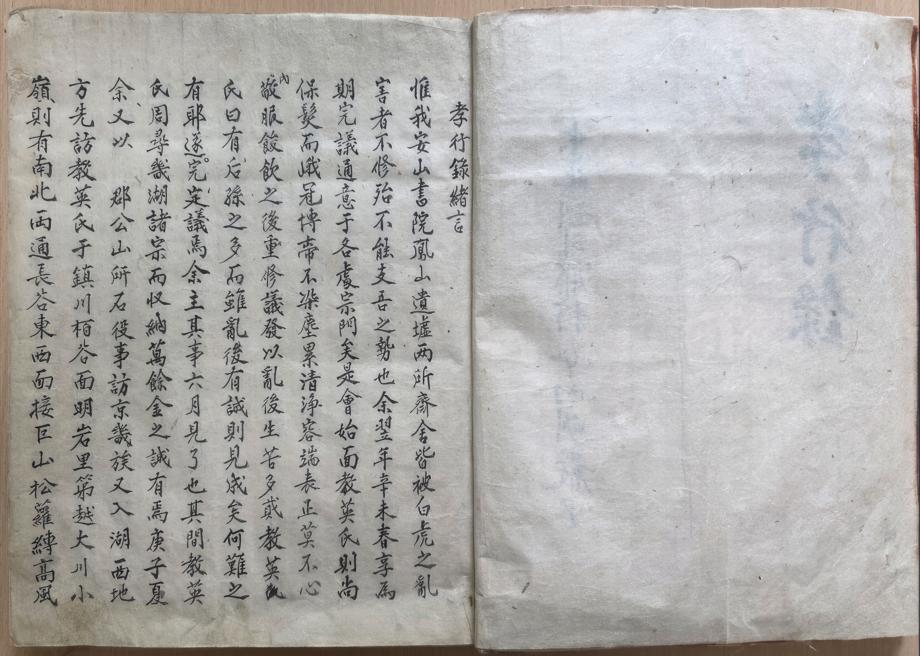 孝行錄緒言
惟我安山書院鳳山遺墟两所齋舍皆被白虎之亂
害者不修殆不能支吾之勢也余翌年辛未春享爲
期完議通意于各處宗門矣是會始面教英氏則尚
保髮而峨冠博帶不染塵累清淨容端表正莫不心
内敬服餕飮之後重修議發以亂後生苦多貳教英
氏曰有后孫之多而雖亂後有誠則見成矣何難之
有耶遂完定議焉余主其事六月見了也其間教英
氏周尋畿湖諸宗而收納萬餘金之誠有焉庚子夏
余又以 郡公山所石役事訪京畿族又入湖西地
方先訪教英氏于鎮川栢谷面明岩里第越大川小
嶺則有南北両通長谷東西面接巨山松蘿縛高風